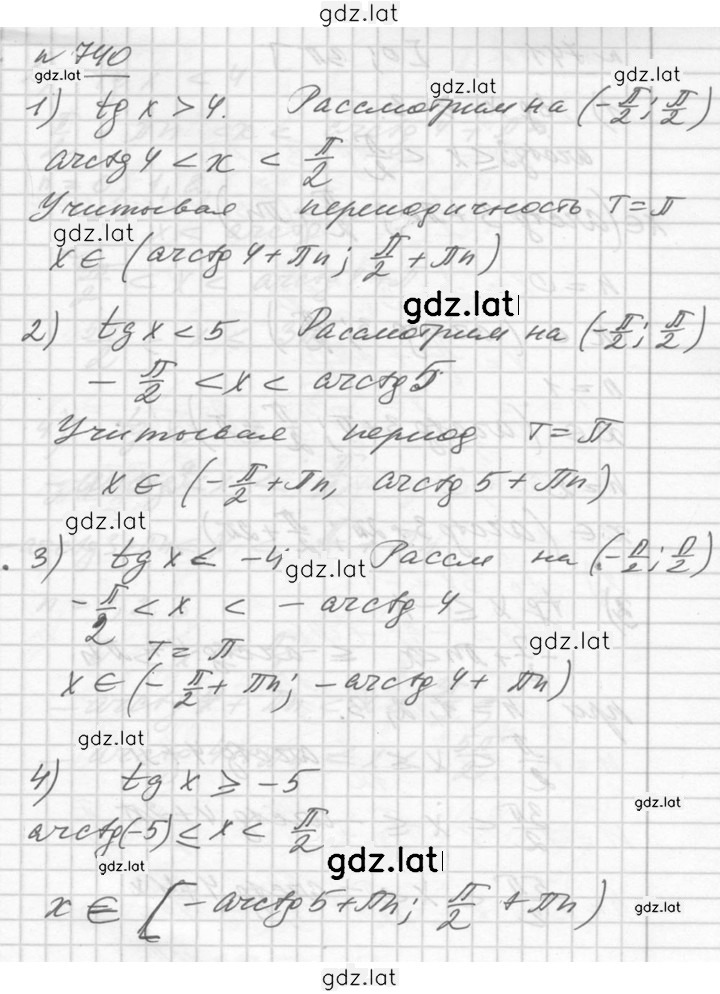 gdz.lat
n 740
gdz.lat
gdz.lat
gdz.lat
1) tg x > 4. Рассмотрим на (-π/2; π/2)
arctg 4 < x < π/2
Учитывая периодичность T = π
gdz.lat
x ∈ (arctg 4 + πn; π/2 + πn)
gdz.lat
2) tg x < 5 Рассмотрим на (-π/2; π/2)
- π/2 < x < arctg 5
Учитывая период T = π
x ∈ (-π/2 + πn, arctg 5 + πn)
gdz.lat
3) tg x < -4 Рассм на (-π/2; π/2)
gdz.lat
-π/2 < x < - arctg 4
T = π
gdz.lat
x ∈ (-π/2 + πn; -arctg 4 + πn)
gdz.lat
4) tg x ≥ -5
gdz.lat
arctg(-5) ≤ x < π/2
gdz.lat
gdz.lat
x ∈ [-arctg 5 + πn; π/2 + πn)
gdz.lat
gdz.lat